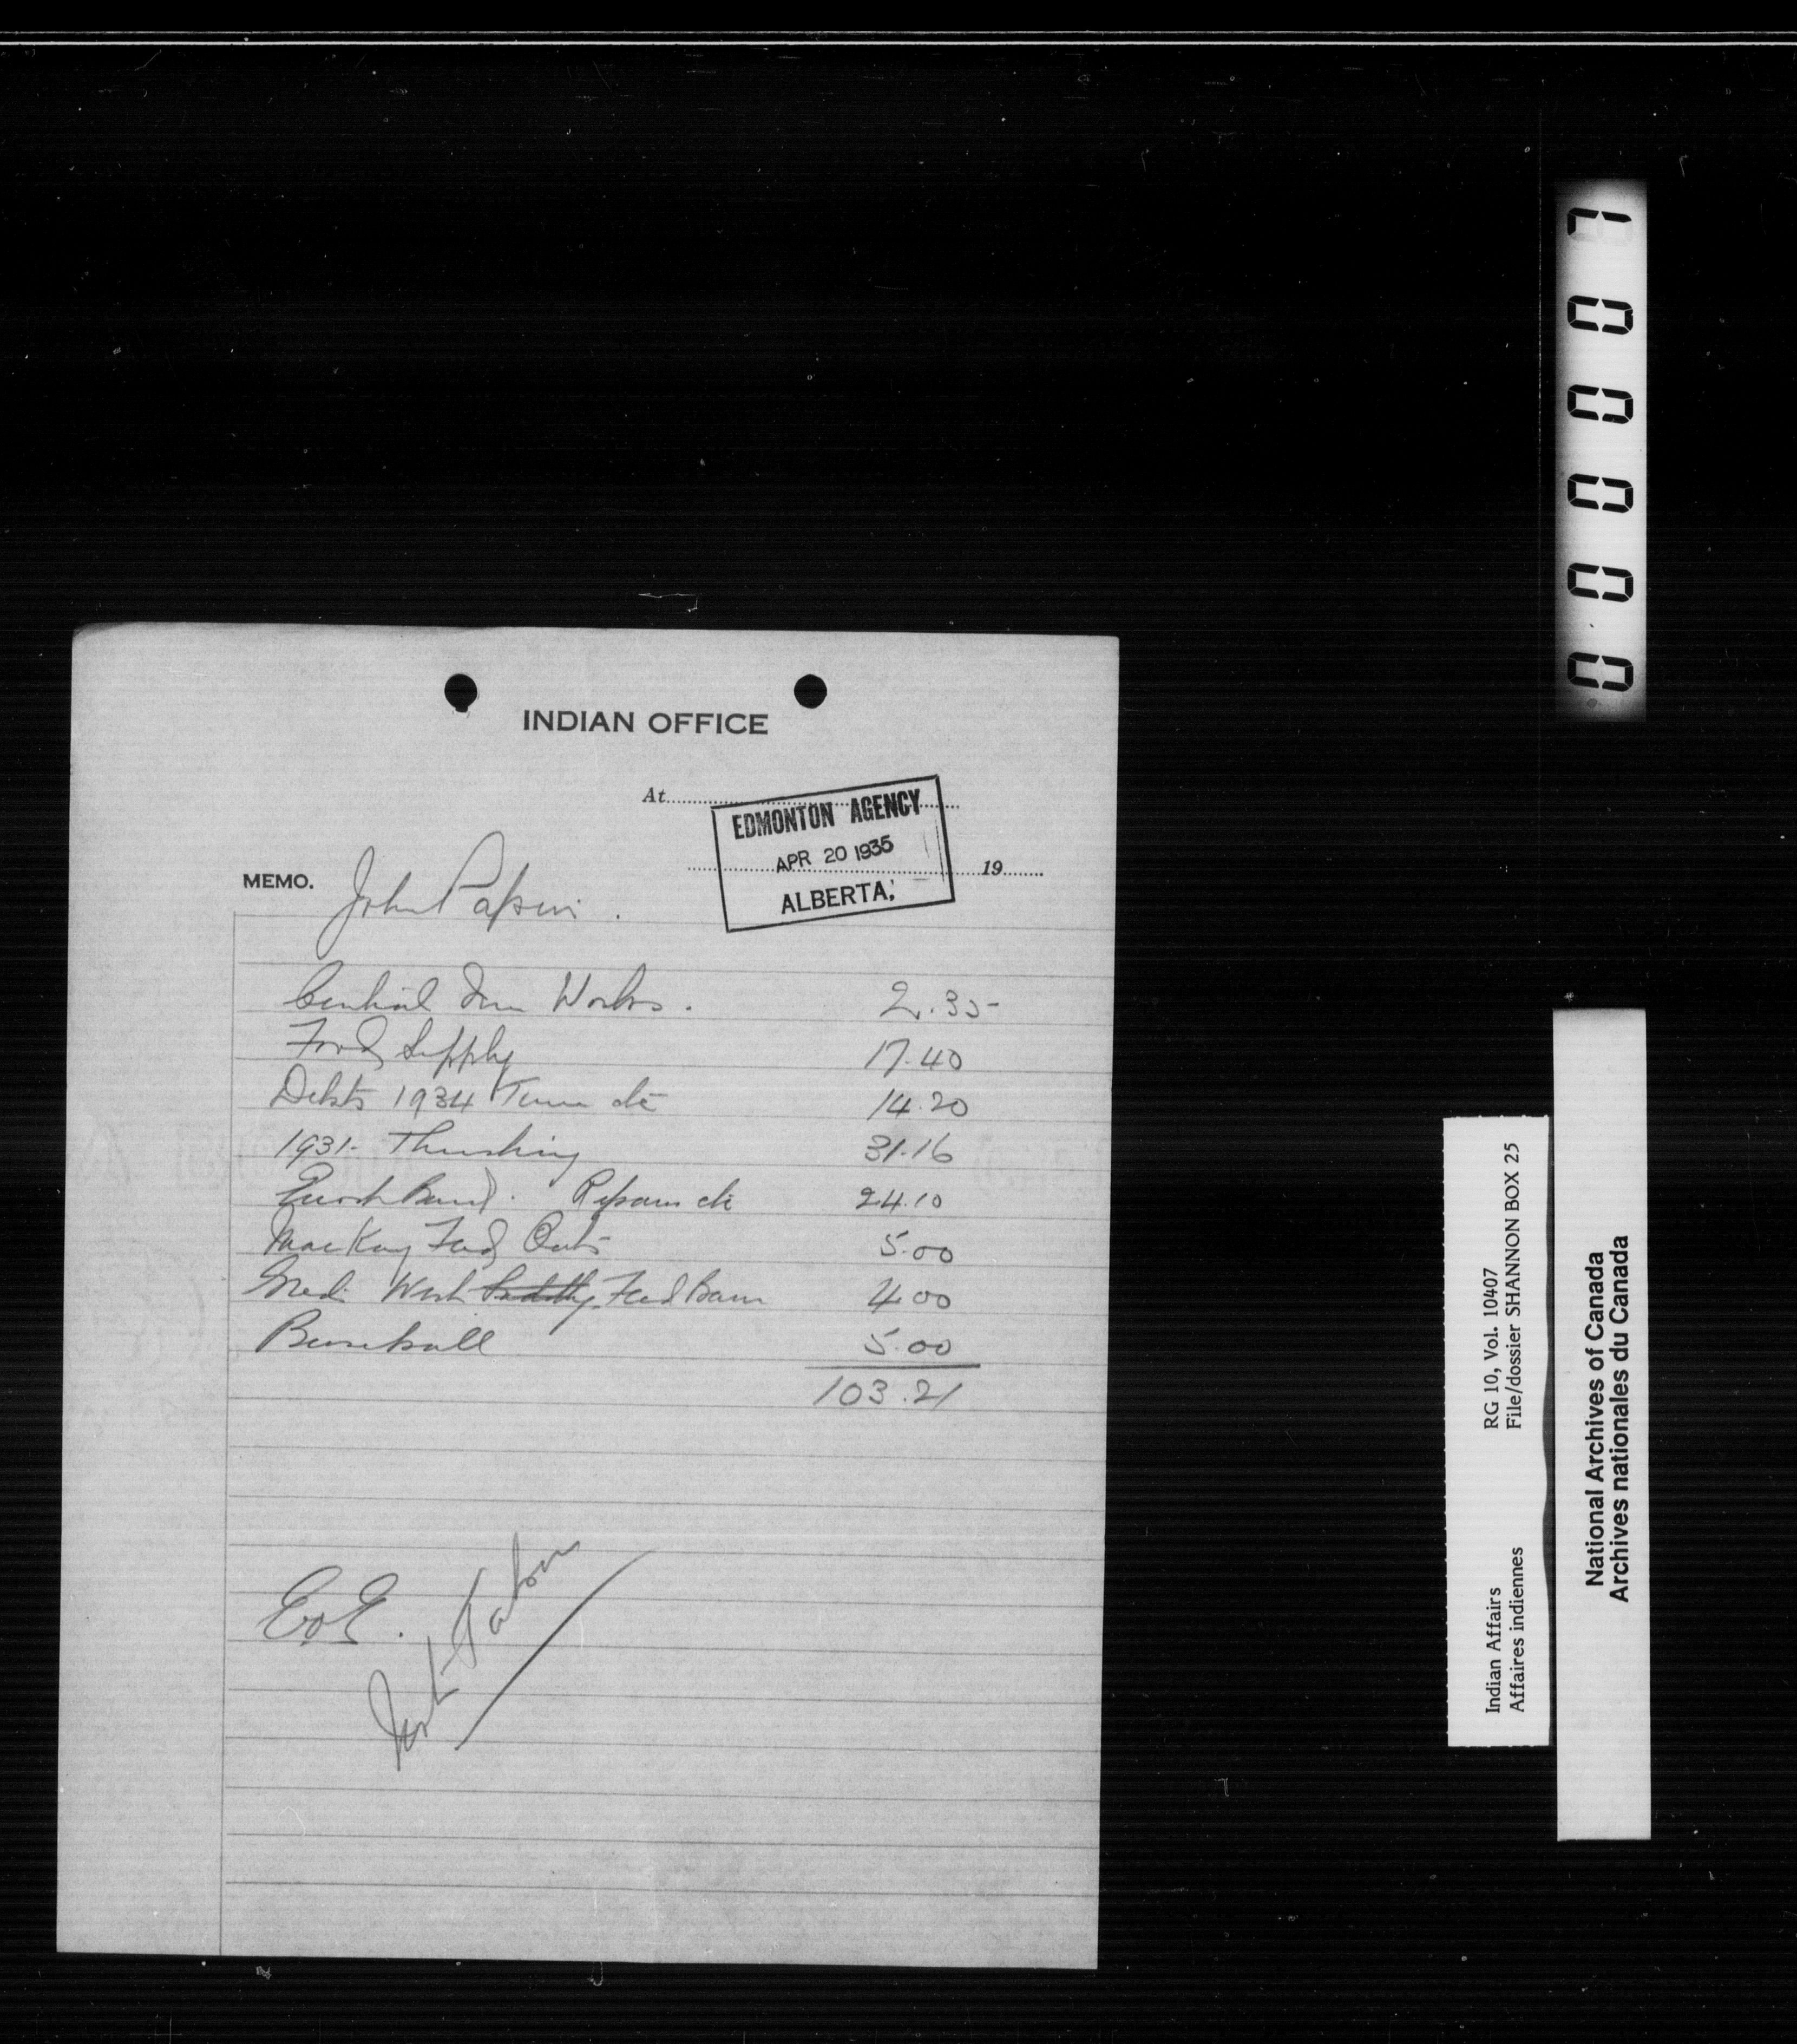 INDIAN OFFICE
At
EDMONTON AGENCY
APR 20 1935
ALBERTA,
19
MEMO. John Papin.
Central Iron Works. 2.35
Food Supply 17.40
Debts 1934 Twine etc 14.20
1931- Threshing 31.16
Enoch Band. Repairs etc 24.10
MacKay Feed Oats 5.00
West Feed Barn 4.00
Baseball 5.00
103.21
EoE.
000007
Indian Affairs RG 10, Vol. 10407
Affaires indiennes File/dossier SHANNON BOX 25
National Archives of Canada
Archives nationales du Canada